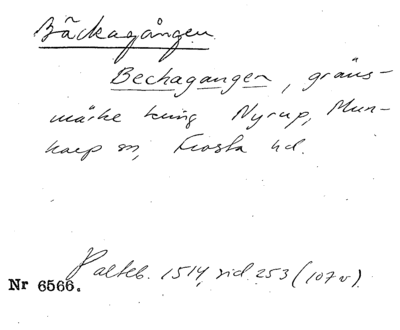 Bäckagången
Bechagangen, gräns-
märke kring Nyrup, Mun-
karp sn, Frosta hd.
Palteb. 1514, sid. 253 (107 v).
Nr 6566.